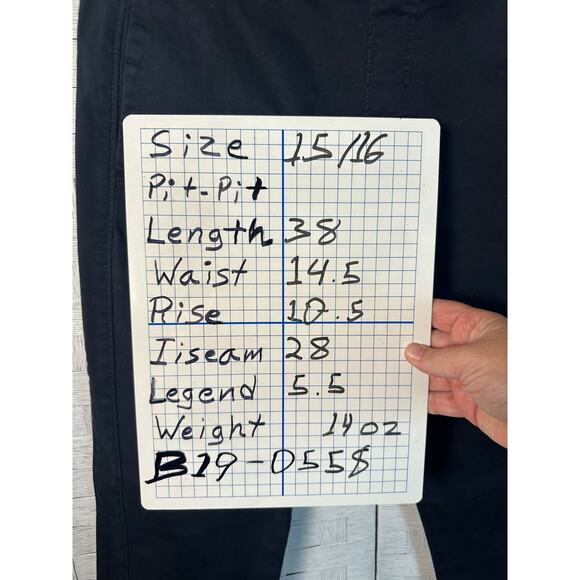 Size 15/16
Pit-Pit
Length 38
Waist 14.5
Rise 10.5
Iiseam 28
Legend 5.5
Weight 14oz
B19-0558